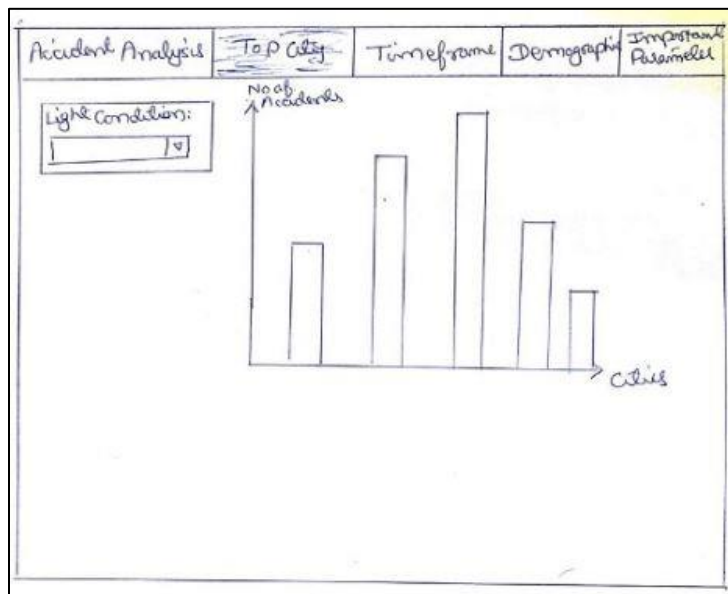 Accident Analysis
Top City
Timeframe
Demographic
Important
Parameter
Light Condition:
No of
Accidents
Cities